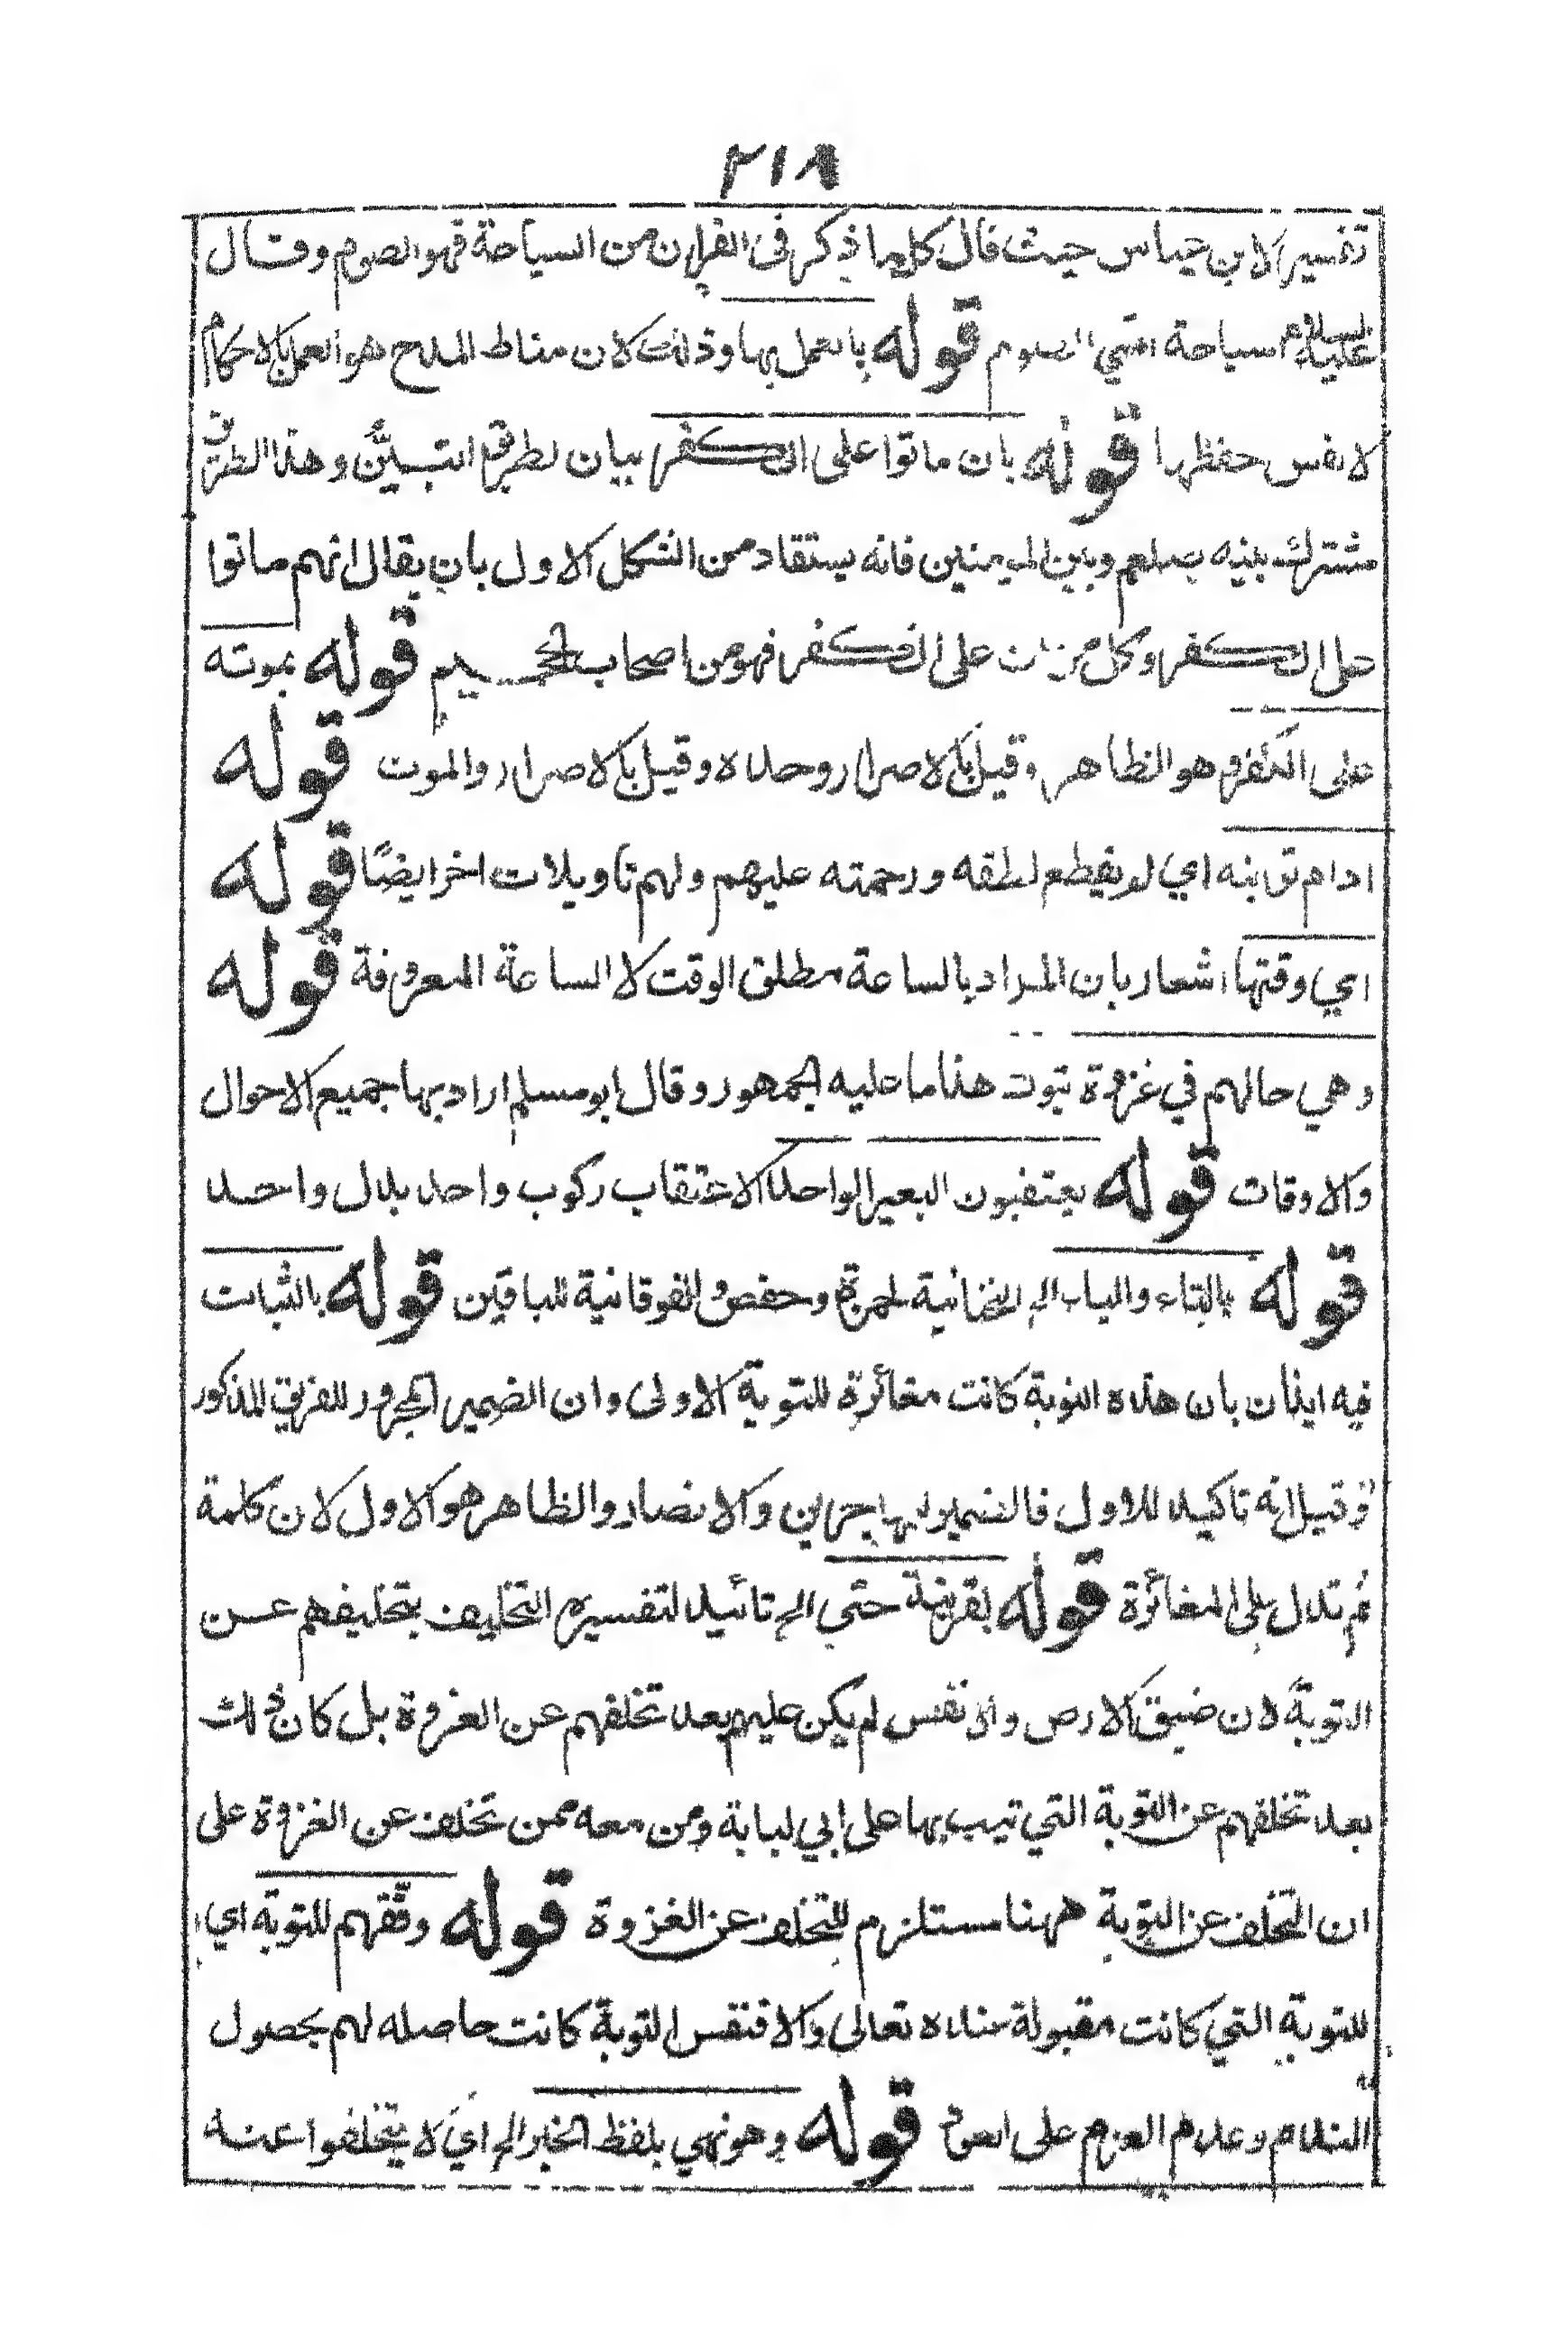 ٢١٨
تفسيرا لابن عباس حيث قال كلما ذكر فى القران من السياحة فهو الصوم وقال
عليه السلام سياحة امتي الصوم قوله بالعمل بها وذلك لان مناط المدح هو العمل بالاحكام
لا نفس حفظها قوله بان ماتوا على الكفر بيان لطريق التبيُّن وهذا الطريق
مشترك بينه صلعم وبين المؤمنين فانه يستفاد من الشكل الاول بان يقال انهم ماتوا
على الكفر وكل من مات على الكفر فهو من اصحاب الجحيم قوله بموته
على الكفر هو الظاهر وقيل بالاصرار وحده وقيل بالاصرار والموت قوله
ادام توبته اي لم يقطع لطفه ورحمته عليهم ولهم تاويلات اخر ايضًا قوله
اي وقتها اشعار بان المراد بالساعة مطلق الوقت لا الساعة المعروفة قوله
وهي حالهم في غزوة تبوك هذا ما عليه الجمهور وقال ابو مسلم اراد بها جميع الاحوال
والاوقات قوله يعتقبون البعير الواحد الاعتقاب ركوب واحد بدل واحد
قوله بالتاء والياء الخ التحتانية لحمزة وحفص والفوقانية للباقين قوله بالثبات
فيه ايذان بان هذه التوبة كانت مغائرة للتوبة الاولى وان الضمير المجرور للفريق المذكور
وقيل انه تاكيد للاول فالضمير للمهاجرين والانصار والظاهر هو الاول لان كلمة
ثم تدل على المغائرة قوله بقرينة حتى الخ تائيد لتفسيره التخليف بتخليفهم عن
التوبة لان ضيق الارض والانفس لم يكن عليهم بعد تخلفهم عن الغزوة بل كان ذلك
بعد تخلفهم عن التوبة التي تيب بها على ابي لبابة ومن معه ممن تخلف عن الغزوة على
ان التخلف عن التوبة ههنا مستلزم للتخلف عن الغزوة قوله وفقهم للتوبة اي
للتوبة التي كانت مقبولة عنده تعالى والا فنفس التوبة كانت حاصله لهم بحصول
الندم وعدم العزم على العود قوله وهو نهي بلفظ الخبر الخ اي لا يتخلفوا عنه